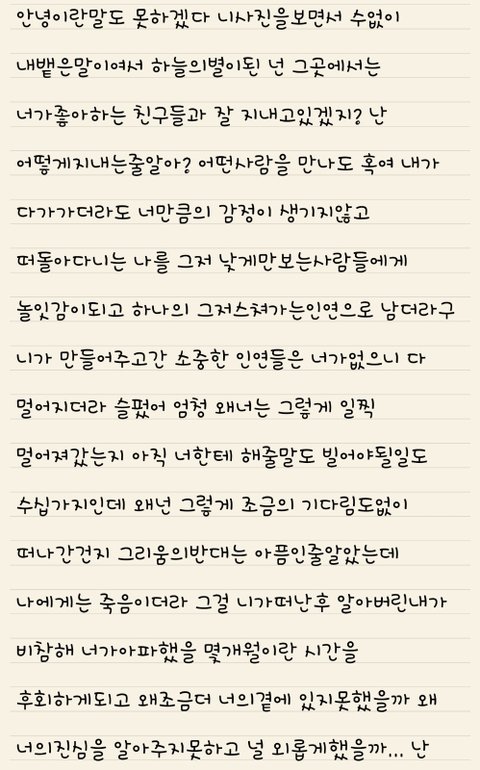 안녕이란말도 못하겠다 니사진을보면서 수없이
내뱉은말이여서 하늘의별이된 넌 그곳에서는
너가좋아하는 친구들과 잘 지내고있겠지? 난
어떻게지내는줄알아? 어떤사람을 만나도 혹여 내가
다가가더라도 너만큼의 감정이 생기지않고
떠돌아다니는 나를 그저 낮게만보는사람들에게
놀잇감이되고 하나의 그저스쳐가는인연으로 남더라구
니가 만들어주고간 소중한 인연들은 너가없으니 다
멀어지더라 슬펐어 엄청 왜너는 그렇게 일찍
멀어져갔는지 아직 너한테 해줄말도 빌어야될일도
수십가지인데 왜넌 그렇게 조금의 기다림도없이
떠나간건지 그리움의반대는 아픔인줄알았는데
나에게는 죽음이더라 그걸 니가떠난후 알아버린내가
비참해 너가아파했을 몇개월이란 시간을
후회하게되고 왜조금더 너의곁에 있지못했을까 왜
너의진심을 알아주지못하고 널 외롭게했을까... 난